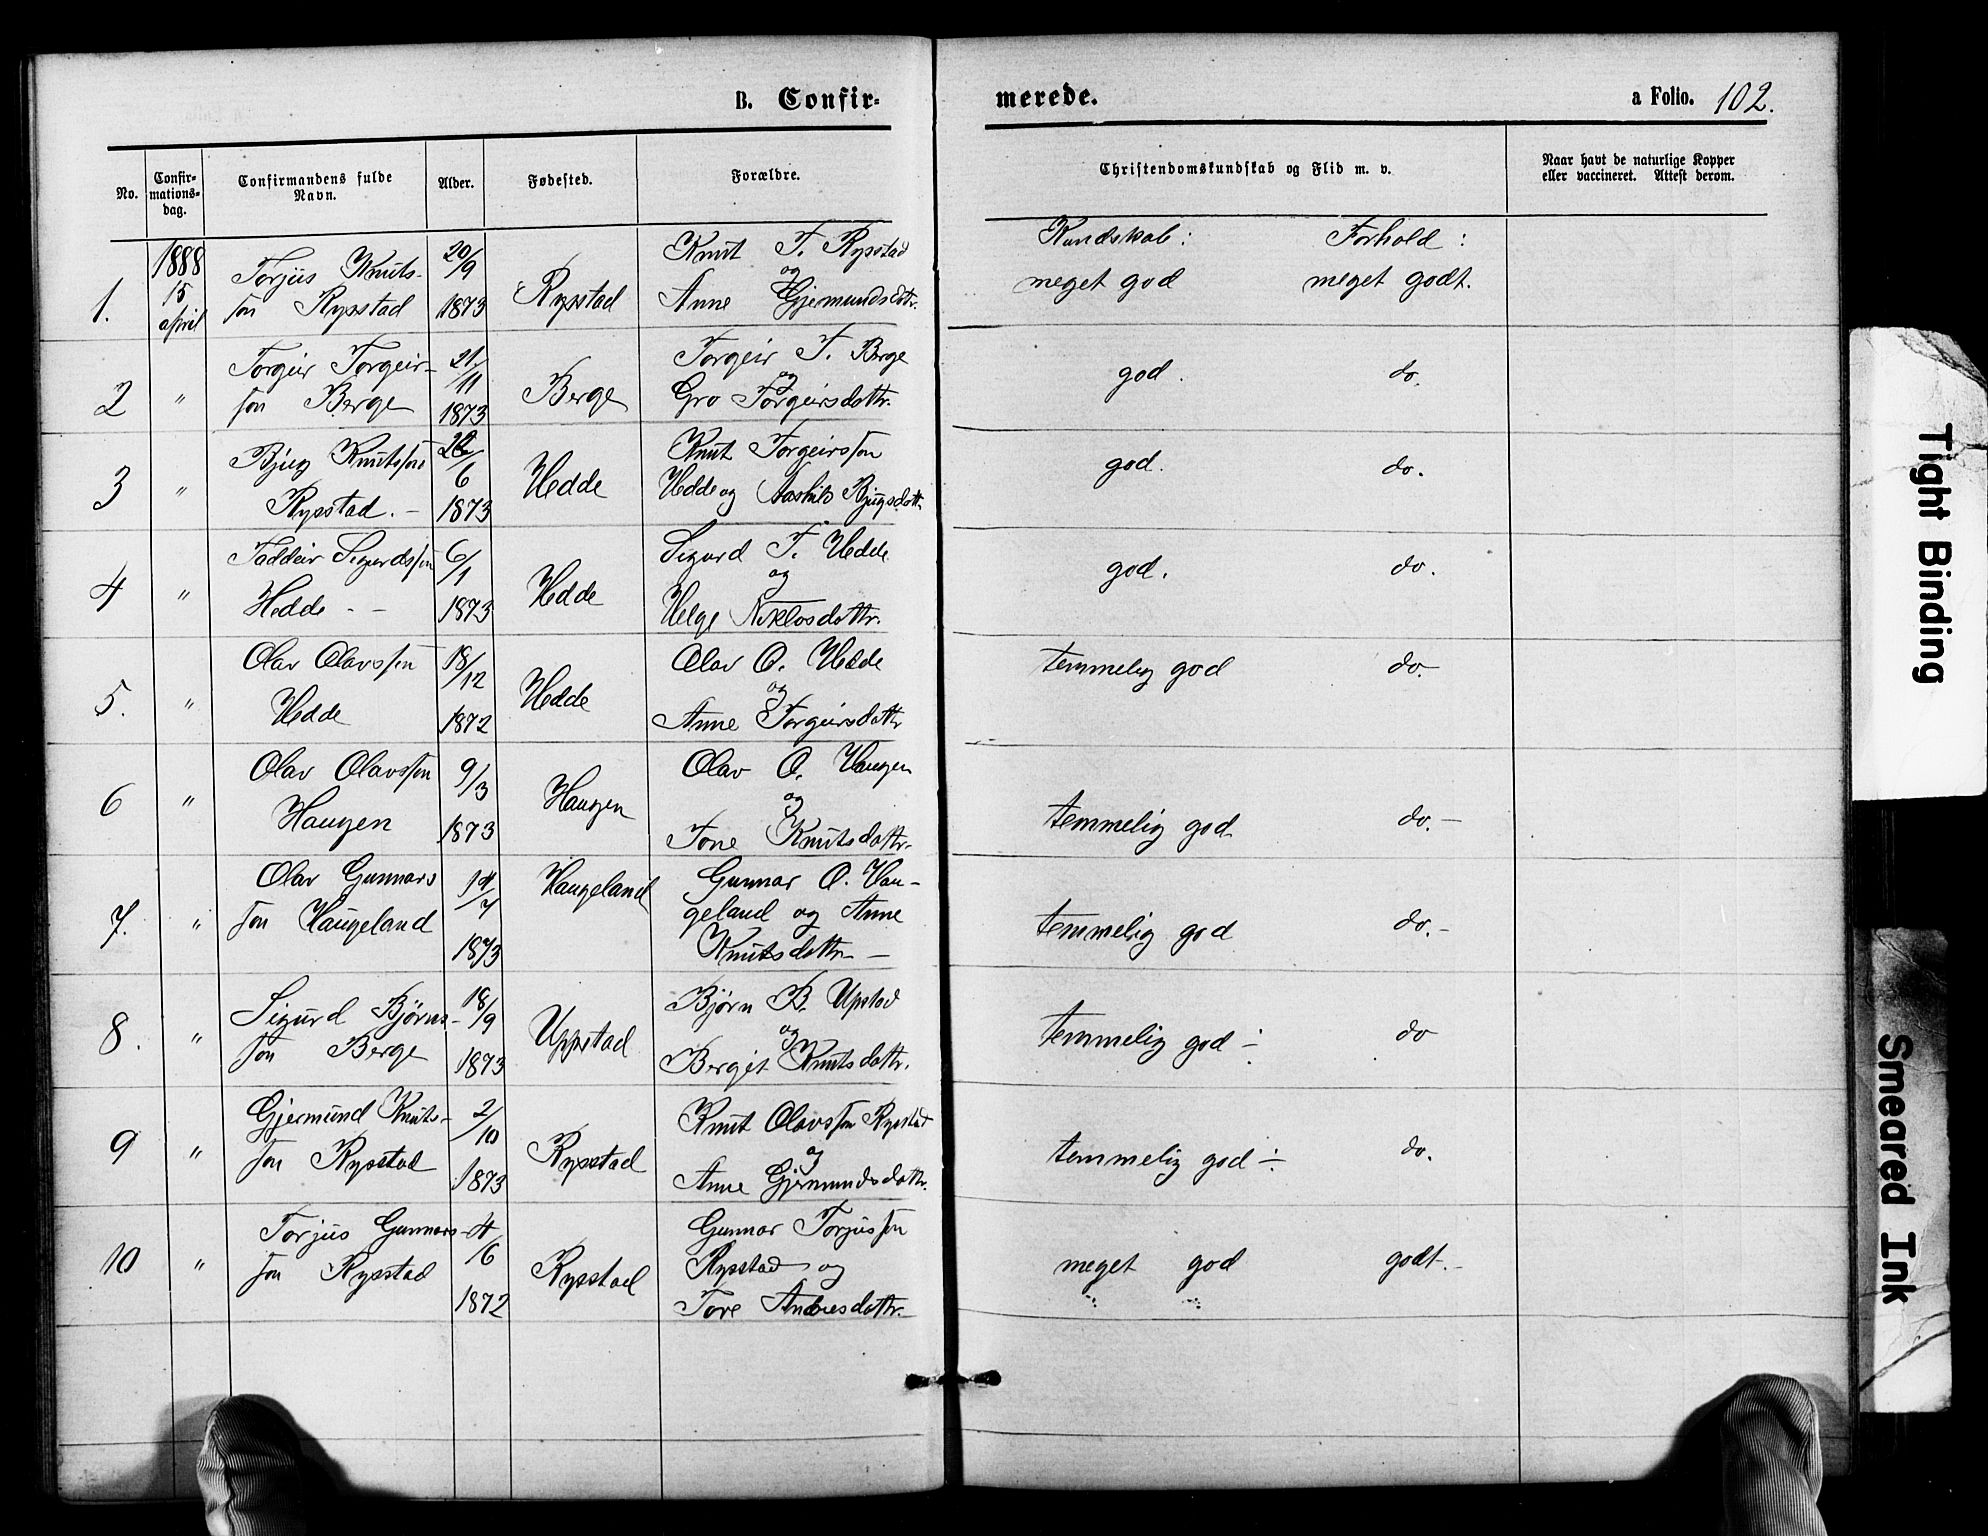 B. Confir-
merede.
a Folio. 102.
No.
Confir-
mations-
dag.
Confirmandens fulde
Navn.
Alder.
Fødested.
Forældre.
Christendomskundskab og Flid m. v.
Naar havt de naturlige Kopper
eller vaccineret. Attest derom.
Kundskab: Forhold:
1. 1888 15 april
Torjus Knuts-
son Rysstad
20/9 1873
Rysstad
Knut T. Rysstad
og
Anne Gjermundsdottr.
meget god meget godt.
2 "
Torgeir Torgeir-
son Berge
21/11 1873
Berge
Torgeir T. Berge
og
Gro Torgeirsdottr.
god. do.
3 "
Bjug Knutsson
Rysstad. -
6 1873
Hedde
Knut Torgeirsson
Hedde og Aashild Bjugsdottr.
god. do.
4 "
Taddeiv Sigurdsson
Hedde - -
6/1 1873
Hedde
Sigurd T. Hedde
og
Helge Niklosdottr.
god. do.
5. "
Olav Olavsson
Hedde
18/12 1872
Hedde
Olav O. Hedde
og
Anne Torgeirsdottr
temmelig god do.
6 "
Olav Olavsson
Haugen
9/3 1873
Haugen
Olav O. Haugen
og
Tone Knutsdottr.
temmelig god do. -
7. "
Olav Gunnars
son Haugeland
14/7 1873
Haugeland
Gunnar O. Hau-
geland og Anne
Knutsdottr -
temmelig god do. -
8. "
Sigurd Bjørns-
son Berge
18/9 1873
Uppstad
Bjørn B. Upstad
og
Bergit Knutsdottr.
temmelig god ÷ do
9 "
Gjermund Knuts-
son Rysstad
2/10 1873
Rysstad
Knut Olavsson Rysstad
og
Anne Gjermundsdottr.
temmelig god ÷ do.
10 "
Torjus Gunnars-
son Rysstad
4/6 1872
Rysstad
Gunnar Torjusson
Rysstad og
Tore Andresdottr.
meget god godt. -
Tight Binding
Smeared Ink